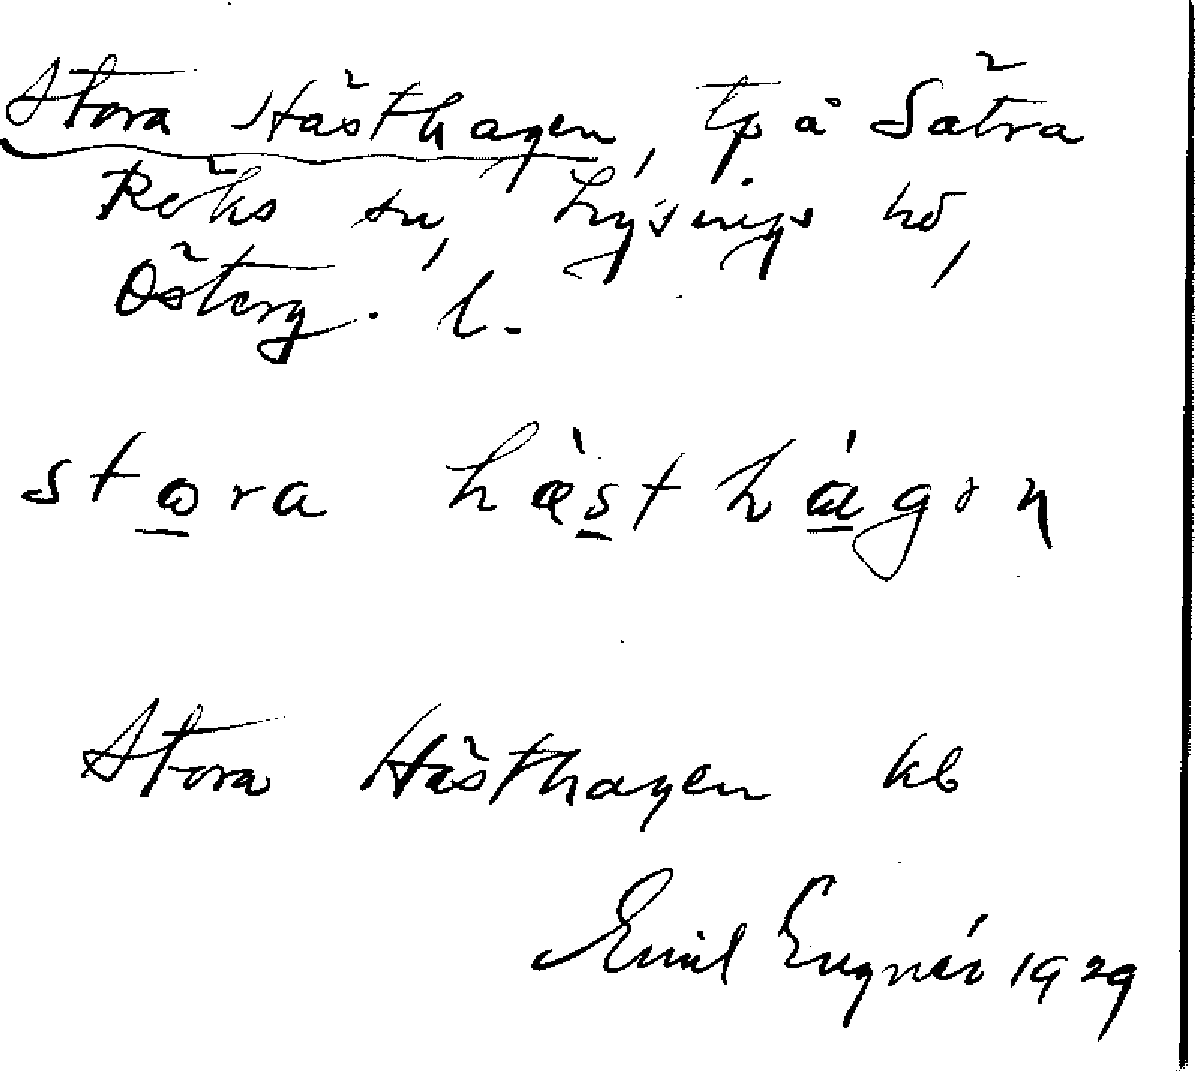 Stora Hästhagen, tp å Sätra
Röks sn, Lysings hd,
Österg. l.
stωra hὰsthágən
Stora Hästhagen kb
Emil Engnér 1929